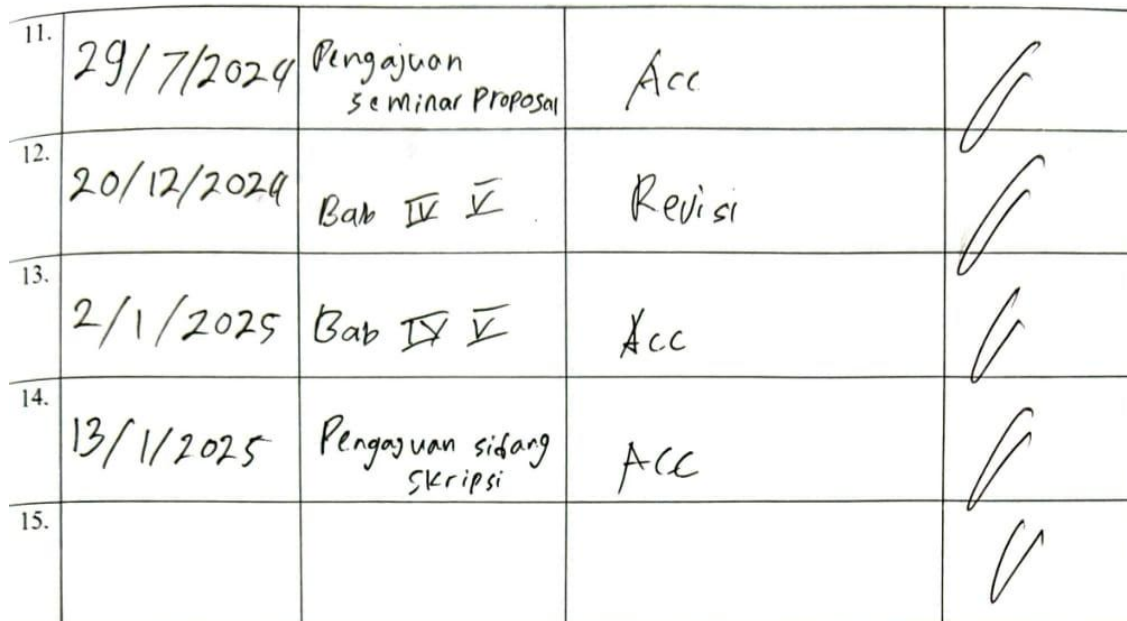 11. 29/7/2024 Pengajuan seminar Proposal Acc
12. 20/12/2024 Bab IV V Revisi
13. 2/1/2025 Bab IV V Acc
14. 13/1/2025 Pengajuan sidang skripsi Acc
15.